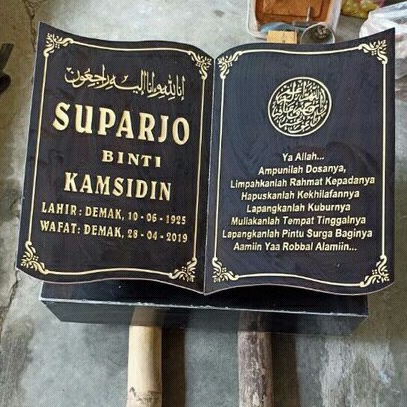 انا لله وانا اليه راجعون
SUPARJO
BINTI
KAMSIDIN
LAHIR : DEMAK, 10 - 06 - 1925
WAFAT : DEMAK, 28 - 04 - 2019
Ya Allah...
Ampunilah Dosanya,
Limpahkanlah Rahmat Kepadanya
Hapuskanlah Kekhilafannya
Lapangkanlah Kuburnya
Muliakanlah Tempat Tinggalnya
Lapangkanlah Pintu Surga Baginya
Aamiin Yaa Robbal Alamiin...